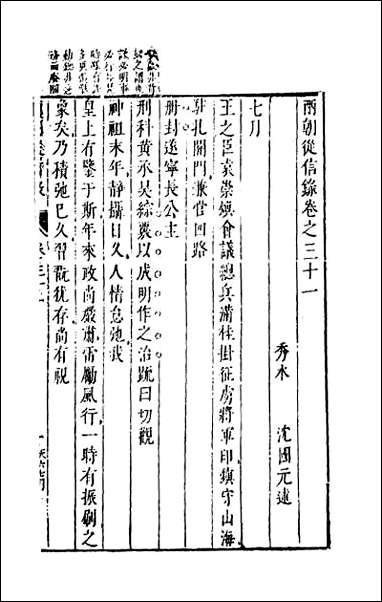 兩朝從信錄卷之三十一
秀水 沈國元述
七月
王之臣袁崇煥會議總兵滿桂掛征虜將軍印鎮守山海
駐扎關門兼管四路
冊封遂寧長公主
刑科黃承昊綜覈以成明作之治疏曰切觀
神祖末年靜攝日久人情怠弛我
皇上有鑒于斯年來政尚嚴肅雷勵風行一時有振刷之
象矣乃積弛已久習翫猶存尚有視